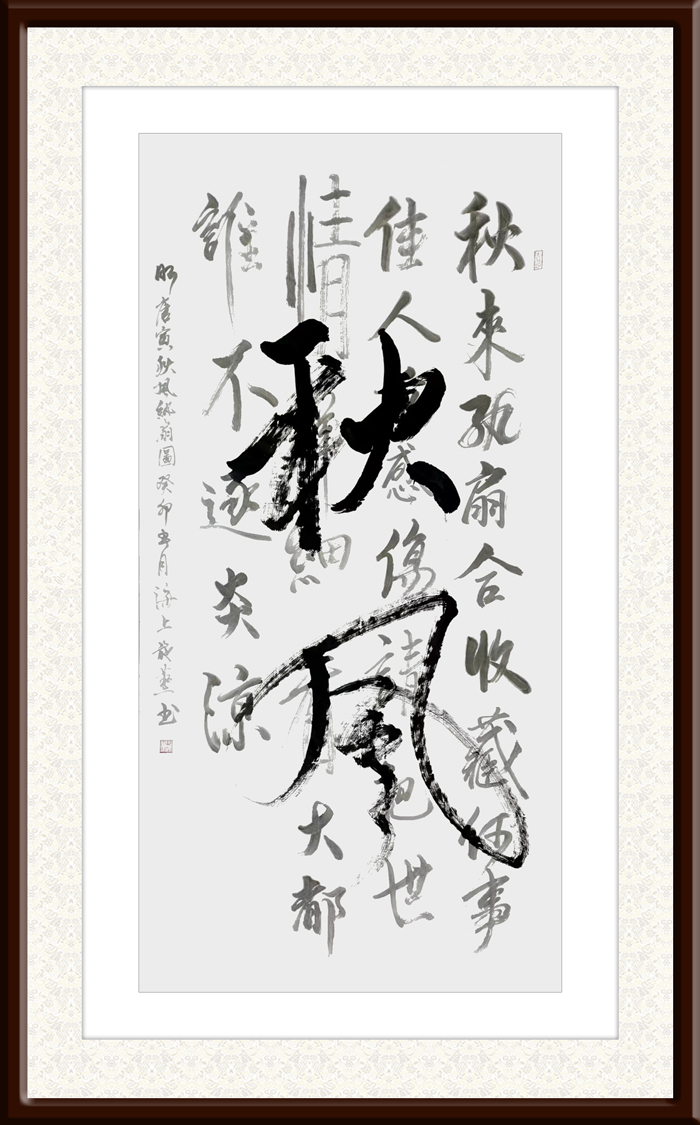 秋風
秋來紈扇合收藏何事
佳人重感傷請把世
情詳細看大都
誰不逐炎涼
明唐寅秋風紈扇圖癸卯五月海上书